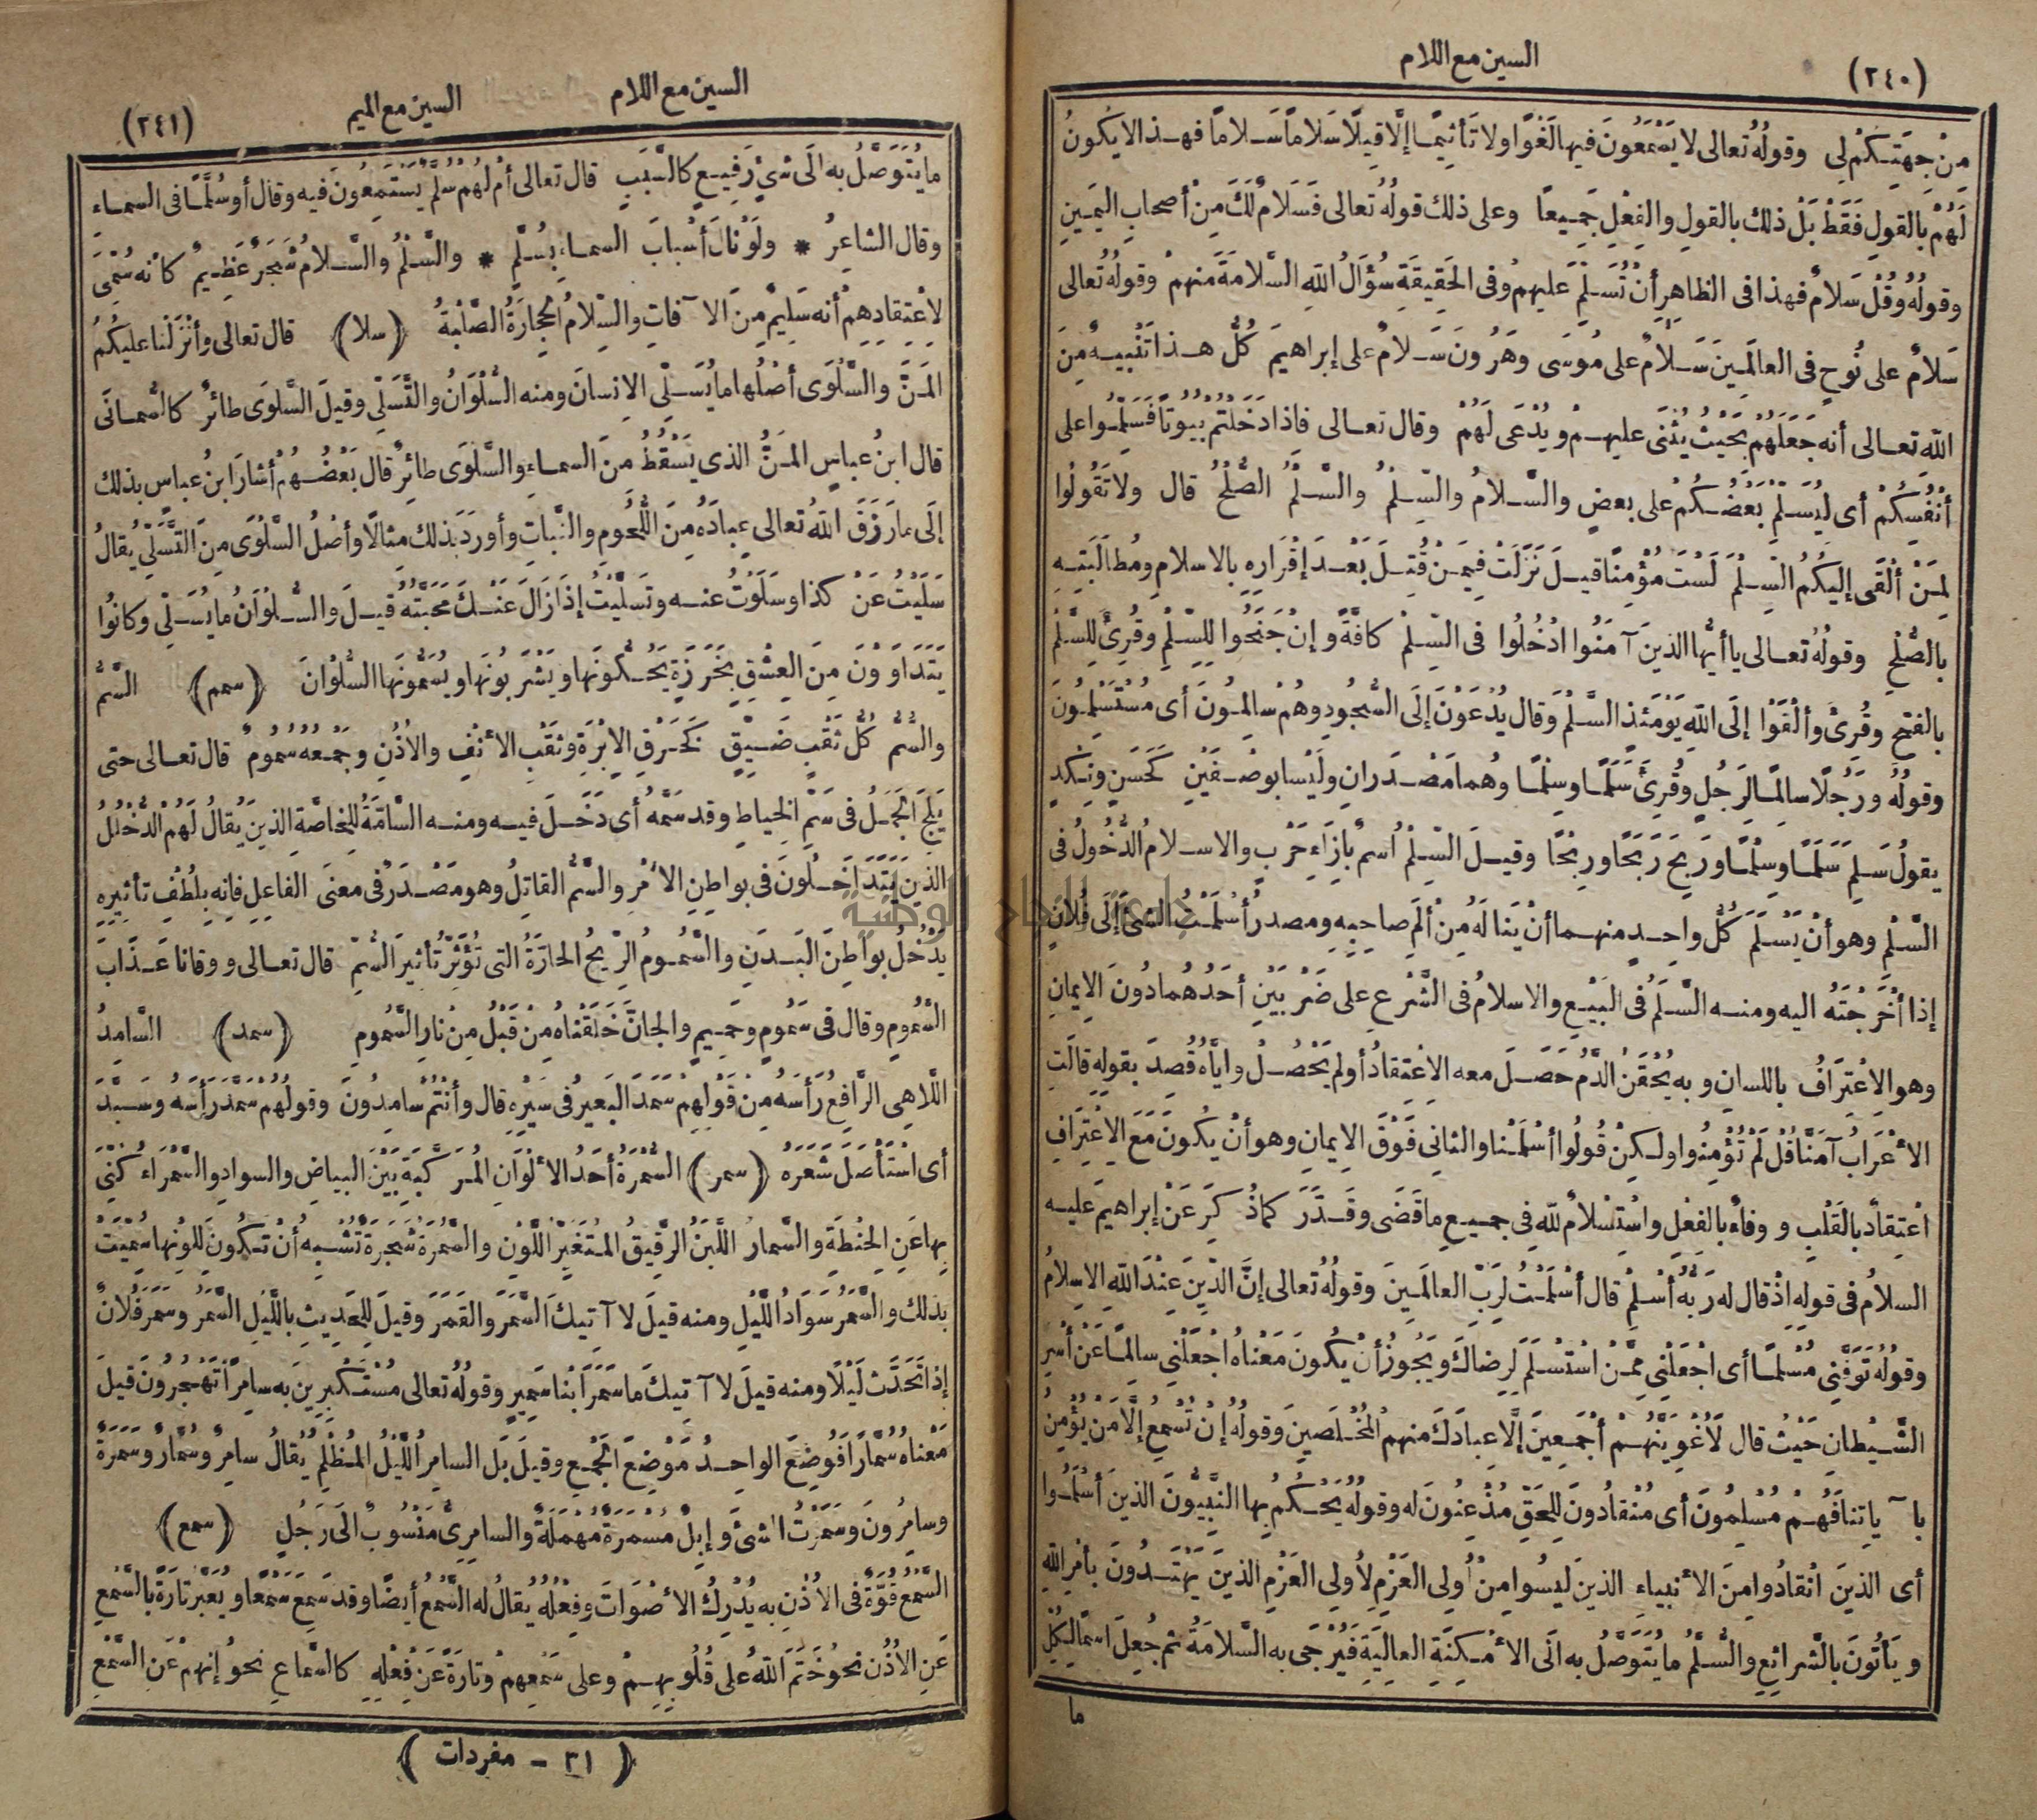 (٢٤٠)
السين مع اللام
مِنْ جِهَتِكُمْ لِى وقولُهُ تعالى لا يَسْمَعُونَ فيها لَغْوًا ولا تَأثِيمًا إلَّا قِيلًا سَلاماً سَلاماً فهذا لا يَكونُ
لَهُمْ بِالقولِ فَقَطْ بَلْ ذلك بالقولِ والفِعْلِ جَمِيعاً وعلى ذلك قولُهُ تعالى فَسَلامٌ لَكَ مِنْ أصحابِ اليَمِينِ
وقولُهُ وقُلْ سَلامٌ فهذا فى الظاهِرِ أنْ تُسَلِّمَ عَلَيهِمْ وفى الحَقِيقَةِ سُؤَالُ اللهِ السَّلامَةَ مِنهمْ وقولُهُ تعالى
سَلامٌ على نُوحٍ فى العالَمِينَ سَلامٌ على مُوسَى وهَرُونَ سَلامٌ على إبراهِيمَ كُلُّ هذا تَنْبِيهٌ مِنَ
اللهِ تعالى أنه جَعَلَهُمْ بحَيْثُ يُثْنَى عليهِمْ ويُدْعَى لَهُمْ وقال تعالى فاذا دَخَلْتُمْ بُيُوتاً فَسَلِّمُوا على
أنْفُسِكُمْ أى لِيُسَلِّمْ بَعْضُكُمْ على بعضٍ والسَّلامُ والسِّلْمُ والسَّلَمُ الصُّلْحُ قال ولا تَقُولُوا
لِمَنْ أَلْقَى إليكُمُ السِّلْمَ لَسْتَ مُؤْمِنًا قيلَ نَزَلَتْ فِيمَنْ قُتِلَ بَعْدَ إقْرَارِهِ بِالاسلامِ ومُطالَبَتِهِ
بالصُّلْحِ وقولُهُ تعالى يا أيُّها الذينَ آمَنُوا ادْخُلُوا فى السِّلْمِ كافَّةً وإنْ جَنَحُوا لِلسِّلْمِ وقُرِئَ لِلسَّلْمِ
بالفتحِ وقُرِئَ وألْقَوْا إلَى اللهِ يَوْمَئِذٍ السَّلْمَ وقال يُدْعَوْنَ إلَى السُّجُودِ وهُمْ سالِمُونَ أى مُسْتَسْلِمُونَ
وقولُهُ ورَجُلًا سالِمًا لِرَجُلٍ وقُرِئَ سَلَمًا وسِلْمًا وهُما مَصْدَرانِ ولَيْسا بوصْفَيْنِ كَحَسَنٍ ونَكَدٍ
يقولُ سَلِمَ سَلَمًا وسِلْمًا ورَبِحَ رَبَحًا ورِبْحًا وقيلَ السِّلْمُ اسمٌ بإزاءِ حَرْبٍ والاسلامُ الدُّخُولُ فى
السَّلْمِ وهو أنْ يَسْلَمَ كُلُّ واحِدٍ منهما أنْ يَنالَهُ مِنْ ألَمِ صاحِبِهِ ومصدرُ أسْلَمْتُ الشئَ إلَى فُلانٍ
إذا أخْرَجْتَهُ اليه ومنه السَّلَمُ فى البَيْعِ والاسلامُ فى الشَّرْعِ على ضَرْبَيْنِ أحَدُهُما دُونَ الايمانِ
وهو الاعْتِرَافُ باللسانِ وبه يُحْقَنُ الدَّمُ حَصَلَ معه الاعْتِقادُ أو لم يَحْصُلْ وإيَّاهُ قُصِدَ بقوله قالَتِ
الأعْرَابُ آمَنَّا قُلْ لَمْ تُؤْمِنُوا ولكِنْ قُولُوا أسْلَمْنا والثانى فَوْقَ الايمانِ وهو أنْ يكونَ مَعَ الاعْتِرَافِ
اعْتِقادٌ بالقَلْبِ ووفاءٌ بالفعْلِ واسْتِسْلامٌ للهِ فى جميعِ ما قَضَى وقَدَّرَ كما ذُكِرَ عَنْ إبراهِيمَ عليه
السلامُ فى قولِهِ إذْ قال له رَبُّهُ أسْلِمْ قال أسْلَمْتُ لِرَبِّ العالَمِينَ وقولُهُ تعالى إنَّ الدِّينَ عِنْدَ اللهِ الاسلامُ
وقولُهُ تَوَفَّنِى مُسْلِمًا أى اجْعَلْنِى مِمَّنْ اسْتَسْلَمَ لِرِضاكَ ويَجُوزُ أنْ يكونَ مَعْناهُ اجْعَلْنِى سالِمًا عَنْ أسْرِ
الشَّيْطانِ حَيْثُ قال لَأُغْوِيَنَّهُمْ أجْمَعِينَ إلَّا عِبادَكَ منهم المُخْلَصِينَ وقولُهُ إنْ تُسْمِعُ إلَّا مَنْ يُؤْمِنُ
بآياتِنا فَهُمْ مُسْلِمُونَ أى مُنْقادُونَ لِلْحَقِّ مُذْعِنُونَ له وقولُهُ يَحْكُمُ بِها النَّبِيُّونَ الذينَ أسْلَمُوا
أى الذينَ انْقادُوا مِنَ الأنبياءِ الذين لَيْسُوا مِنْ أُولِى العَزْمِ لأُولِى العَزْمِ الذينَ يَهْتَدُونَ بأمْرِ اللهِ
ويَأتُونَ بالشَّرائِعِ والسُّلَّمُ ما يُتَوَصَّلُ به الَى الأمْكِنَةِ العالِيَةِ فَيُرْجَى به السَّلامَةُ ثم جُعِلَ اسمًا لِكُلِّ
ما
السين مع اللام
السين مع الميم
(٢٤١)
ما يُتَوَصَّلُ به الَى شئٍ رَفِيعٍ كالسَّبَبِ قال تعالى أمْ لَهُمْ سُلَّمٌ يَسْتَمِعُونَ فيه وقال أو سُلَّمًا فى السماءِ
وقال الشاعِرُ * ولَوْ نالَ أسْبابَ السماءِ بِسُلَّمٍ * والسَّلْمُ والسَّلامُ شَجَرٌ عَظِيمٌ كانه سُمِّىَ
لاعْتِقادِهِمْ أنه سَلِيمٌ مِنَ الآفاتِ والسِّلامُ الحِجَارَةُ الصُّلْبَةُ (سلا) قال تعالى وأنْزَلْنا عليكُمُ
المَنَّ والسَّلْوَى أصْلُها ما يُسَلِّى الانسانَ ومنه السُّلْوَانُ والتَّسَلِّى وقيلَ السَّلْوَى طائرٌ كالسُّمانَى
قال ابنُ عباسٍ المَنُّ الذى يَسْقُطُ مِنَ السماءِ والسَّلْوَى طائِرٌ قال بَعْضُهُمْ أشارَ ابنُ عباسٍ بذلك
إلَى ما رَزَقَ اللهُ تعالى عِبادَهُ مِنَ اللُّحُومِ والنَّباتِ وأورَدَ بذلك مثالًا وأصْلُ السَّلْوَى مِنَ التَّسَلِّى يُقالُ
سَلَيْتُ عَنْ كذا وسَلَوْتُ عنه وتَسَلَّيْتُ إذا زَالَ عَنْكَ مَحَبَّتُهُ قيلَ والسُّلْوَانُ ما يُسَلِّى وكانُوا
يَتَدَاوَوْنَ مِنَ العِشْقِ بِخَرَزَةٍ يَحُكُّونَها ويَشْرَبُونَها ويُسَمُّونَها السُّلْوَانَ (سمم) السَّمُّ
والسُّمُّ كُلُّ ثَقْبٍ ضَيِّقٍ كَخَرْقِ الابْرَةِ وثَقْبِ الأنْفِ والأذُنِ وجَمْعُه سُمُومٌ قال تعالى حتى
يَلِجَ الجَمَلُ فى سَمِّ الخِياطِ وقد سَمَّهُ أى دَخَلَ فيه ومنه السَّامَّةُ لِلْخاصَّةِ الذين يُقالُ لَهُمْ الدُّخْلُلُ
الذينَ يَتَدَاخَلُونَ فى بواطِنِ الأمْرِ والسَّمُّ القاتِلُ وهو مَصْدَرٌ فى معنَى الفاعِلِ فانه بِلُطْفِ تأثيرِهِ
يَدْخُلُ بواطِنَ البَدَنِ والسَّمُومُ الرِّيحُ الحارَّةُ التى تُؤَثِّرُ تأثيرَ السُّمِّ قال تعالى ووقانا عَذَابَ
السَّمُومِ وقال فى سَمُومٍ وحَمِيمٍ والجانَّ خَلَقْناهُ مِنْ قَبْلُ مِنْ نارِ السَّمُومِ (سمد) السَّامِدُ
اللَّاهِى الرَّافِعُ رَأْسَهُ مِنْ قَوْلِهِمْ سَمَدَ البَعِيرُ فى سَيْرِهِ قال وأنْتُمْ سامِدُونَ وقولُهُمْ سَمَّدَ رَأسَهُ وسَبَّدَ
أى اسْتَأْصَلَ شَعَرَهُ (سمر) السُّمْرَةُ أحَدُ الألْوَانِ المُرَكَّبَةِ بَيْنَ البياضِ والسوادِ والسَّمْرَاءُ كُنِّىَ
بِها عَنِ الحِنْطَةِ والسَّمارُ اللَّبَنُ الرَّقِيقُ المُتَغَيِّرُ اللَّوْنِ والسَّمُرَةُ شَجَرَةٌ تُشْبِهُ أنْ تَكونَ لِلَوْنِها سُمِّيَتْ
بذلك والسَّمَرُ سَوَادُ اللَّيْلِ ومنه قيلَ لا آتِيكَ السَّمَرَ والقَمَرَ وقيلَ لِلْحَدِيثِ بِاللَّيْلِ السَّمَرُ وسَمَرَ فُلانٌ
إذا تَحَدَّثَ لَيْلًا ومنه قيلَ لا آتِيكَ ما سَمَرَ ابْنا سَمِيرٍ وقولُهُ تعالى مُسْتَكْبِرِينَ به سامِرًا تَهْجُرُونَ قيلَ
مَعْناهُ سُمَّارًا فَوُضِعَ الواحِدُ مَوْضِعَ الجَمْعِ وقيلَ بَلِ السامِرُ اللَّيْلُ المُظْلِمُ يُقالُ سامِرٌ وسُمَّارٌ وسَمَرَةٌ
وسامِرُونَ وسَمَّرْتُ الشئَ وإبِلٌ مُسْمَرَةٌ مُهْمَلَةٌ والسامِرِىُّ مَنْسُوبٌ الَى رَجُلٍ (سمع)
السَّمْعُ قُوَّةٌ فى الأذُنِ به يُدْرِكُ الأصْوَاتَ وفِعْلُهُ يُقالُ له السَّمْعُ أيضًا وقد سَمِعَ سَمْعًا ويُعَبَّرُ تارَةً بالسَّمْعِ
عَنِ الأذُنِ نحوُ خَتَمَ اللهُ على قُلُوبِهِمْ وعلى سَمْعِهِمْ وتارَةً عَنْ فِعْلِهِ كالسَّماعِ نحوُ إنهمْ عَنِ السَّمْعِ
(٣١ - مفردات)